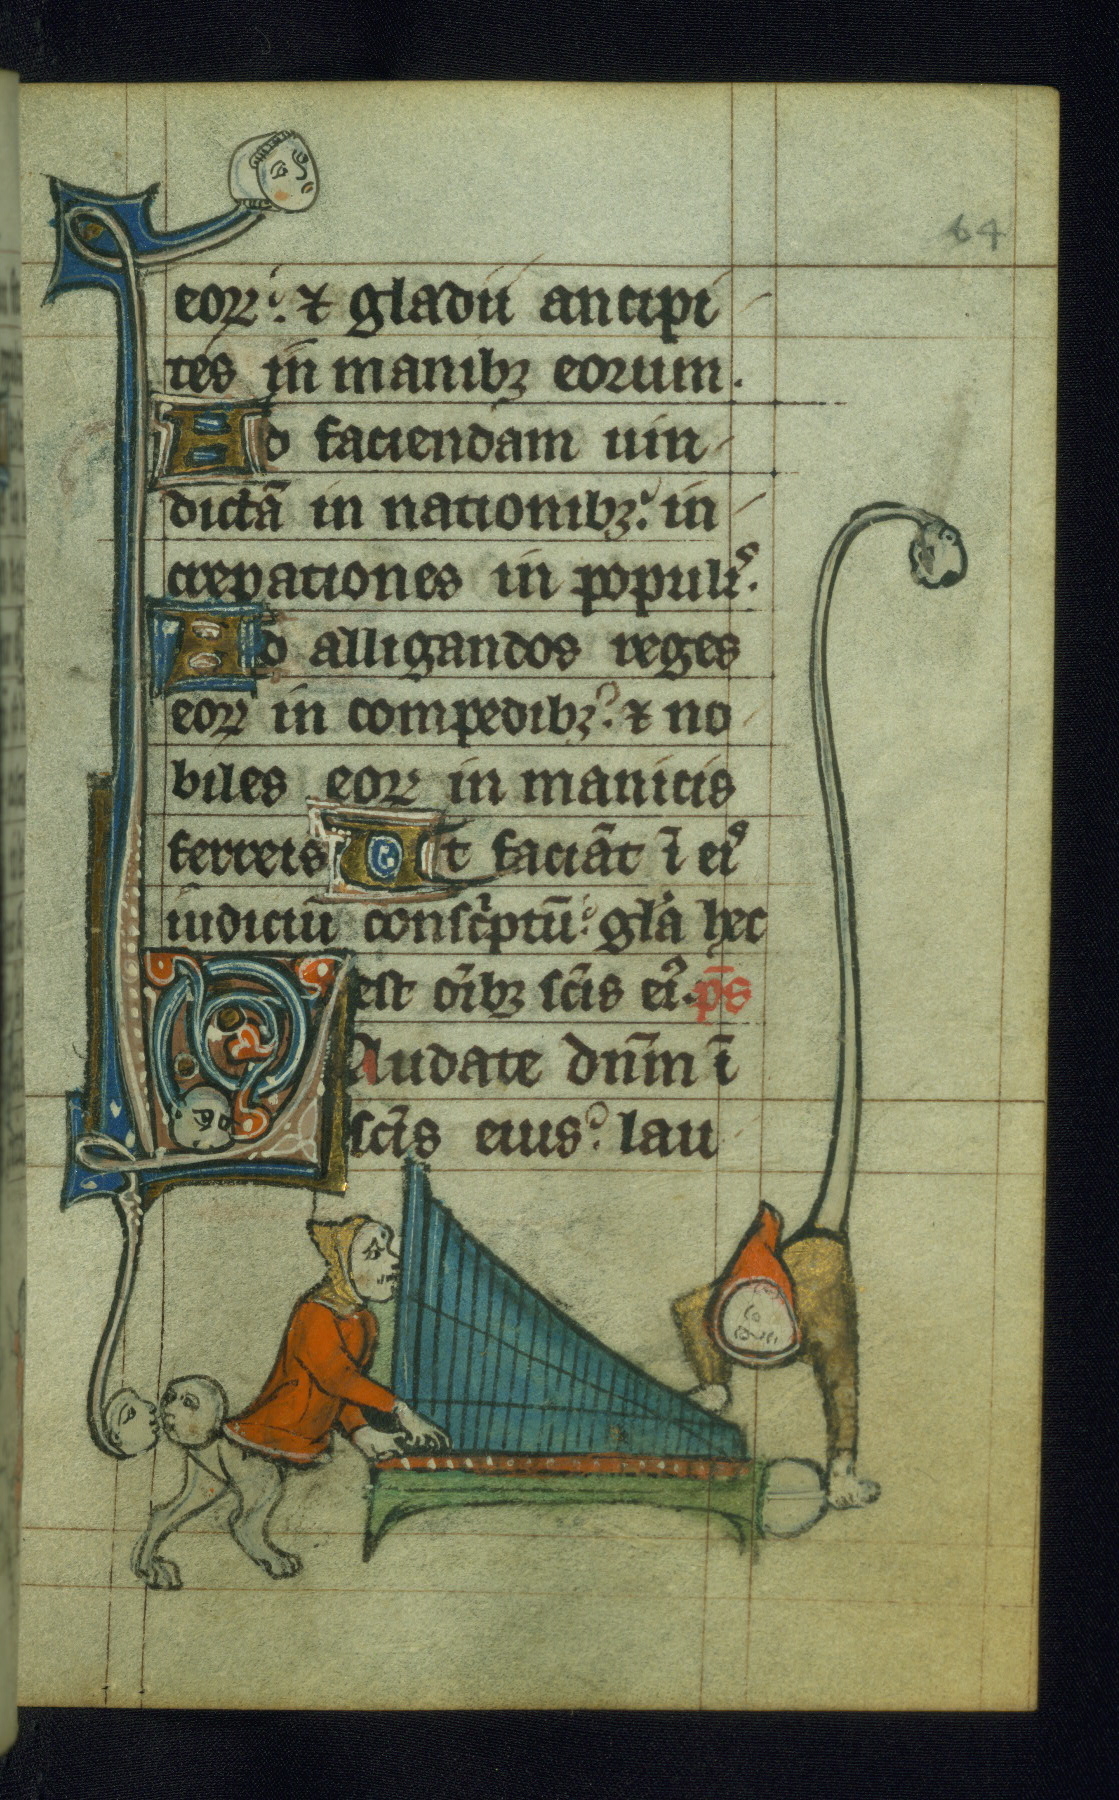 64
eoꝝ: ⁊ gladii ancipi
tes in manibꝫ eorum.
Ad faciendam uin
dictā in nationibꝫ: in
crepationes in populis.
Ad alligandos reges
eoꝝ in compedibꝫ: ⁊ no
biles eoꝝ in manicis
ferreis Ut faciāt ī eis
iudiciū conscptū: gla hec
est oībꝫ scīs eis. ps̄
Laudate dnm̄ ī
scīs eius: lau